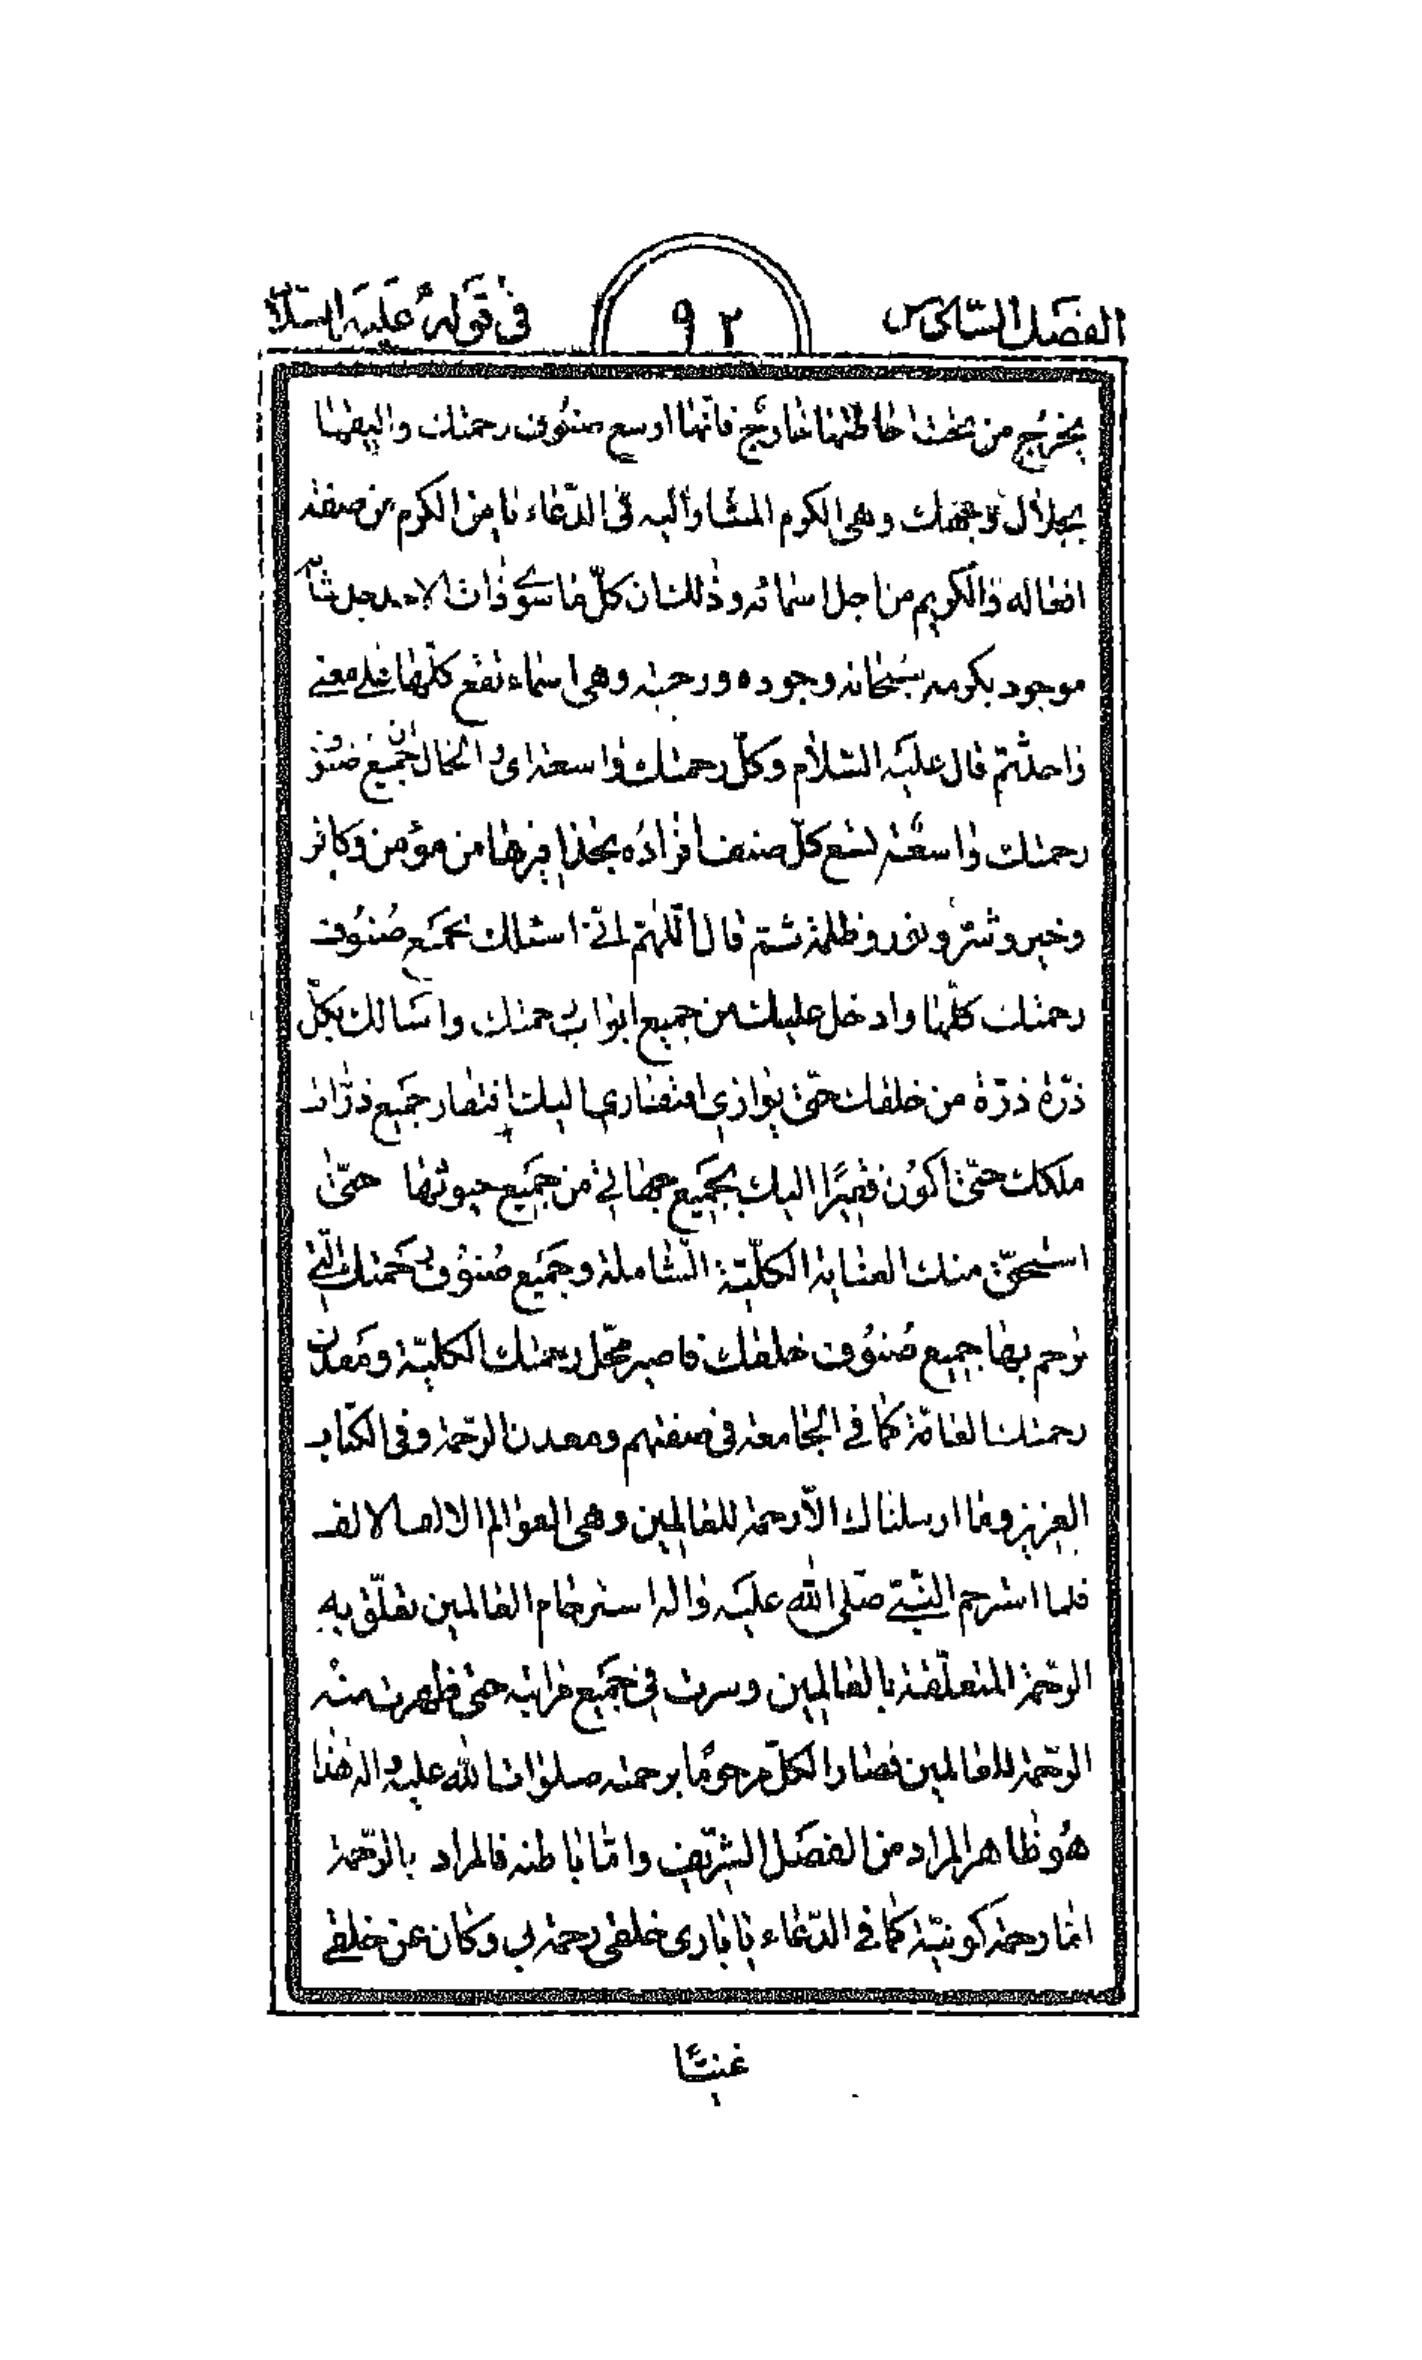 الفصل السادس
٩٢
في قوله عليه السلام
يخرج من تحت احاطتها خارج فانها اوسع صنوف رحمتك واليقها
بجلال وجهك وهى الكرم المشار اليه فى الدعاء يا من الكرم من صفة
افعاله والكريم من اجل اسمائه وذلك ان كل ما سوى ذات الاحد جل شأنه
موجود بكرمه سبحانه وجوده ورحمته وهى اسماء تقع كلها على معنى
واحد ثم قال عليه السلام وكل رحمتك واسعة اى والحال ان جميع صنوف
رحمتك واسعة لسع كل صنف افراده بحذافيرها من مؤمن وكافر
وخير وشر ونور وظلمة ثم قال اللهم انى اسئلك بجميع صنوف
رحمتك كلها وادخل عليك من جميع ابواب رحمتك واسالك بكل
ذرة ذرة من خلقك حتى يوازي افتقاري اليك افتقار جميع ذرات
ملكك حتى اكون فقيرا اليك بجميع جهاتي من جميع حيوثها حتى
استحق منك العناية الكلية الشاملة وجميع صنوف رحمتك التي
ترحم بها جميع صنوف خلقك فاصير محل رحمتك الكلية ومعدن
رحمتك العامة كما في الجامعة في صفتهم ومعدن الرحمة وفى الكتاب
العزيز وما ارسلناك الا رحمة للعالمين وهى العوالم الالف الالف
فلما استرحم النبي صلى الله عليه واله استرحام العالمين تعلق به
الرحمة المتعلقة بالعالمين وسرت في جميع مراتبه حتى ظهرت منه
الرحمة للعالمين فصار الكل مرحوما برحمته صلوات الله عليه واله هذا
هو ظاهر المراد من الفصل الشريف واما باطنه فالمراد بالرحمة
اما رحمة كونية كما في الدعاء يا باري خلقى رحمة بي وكان عن خلقي
غنيا